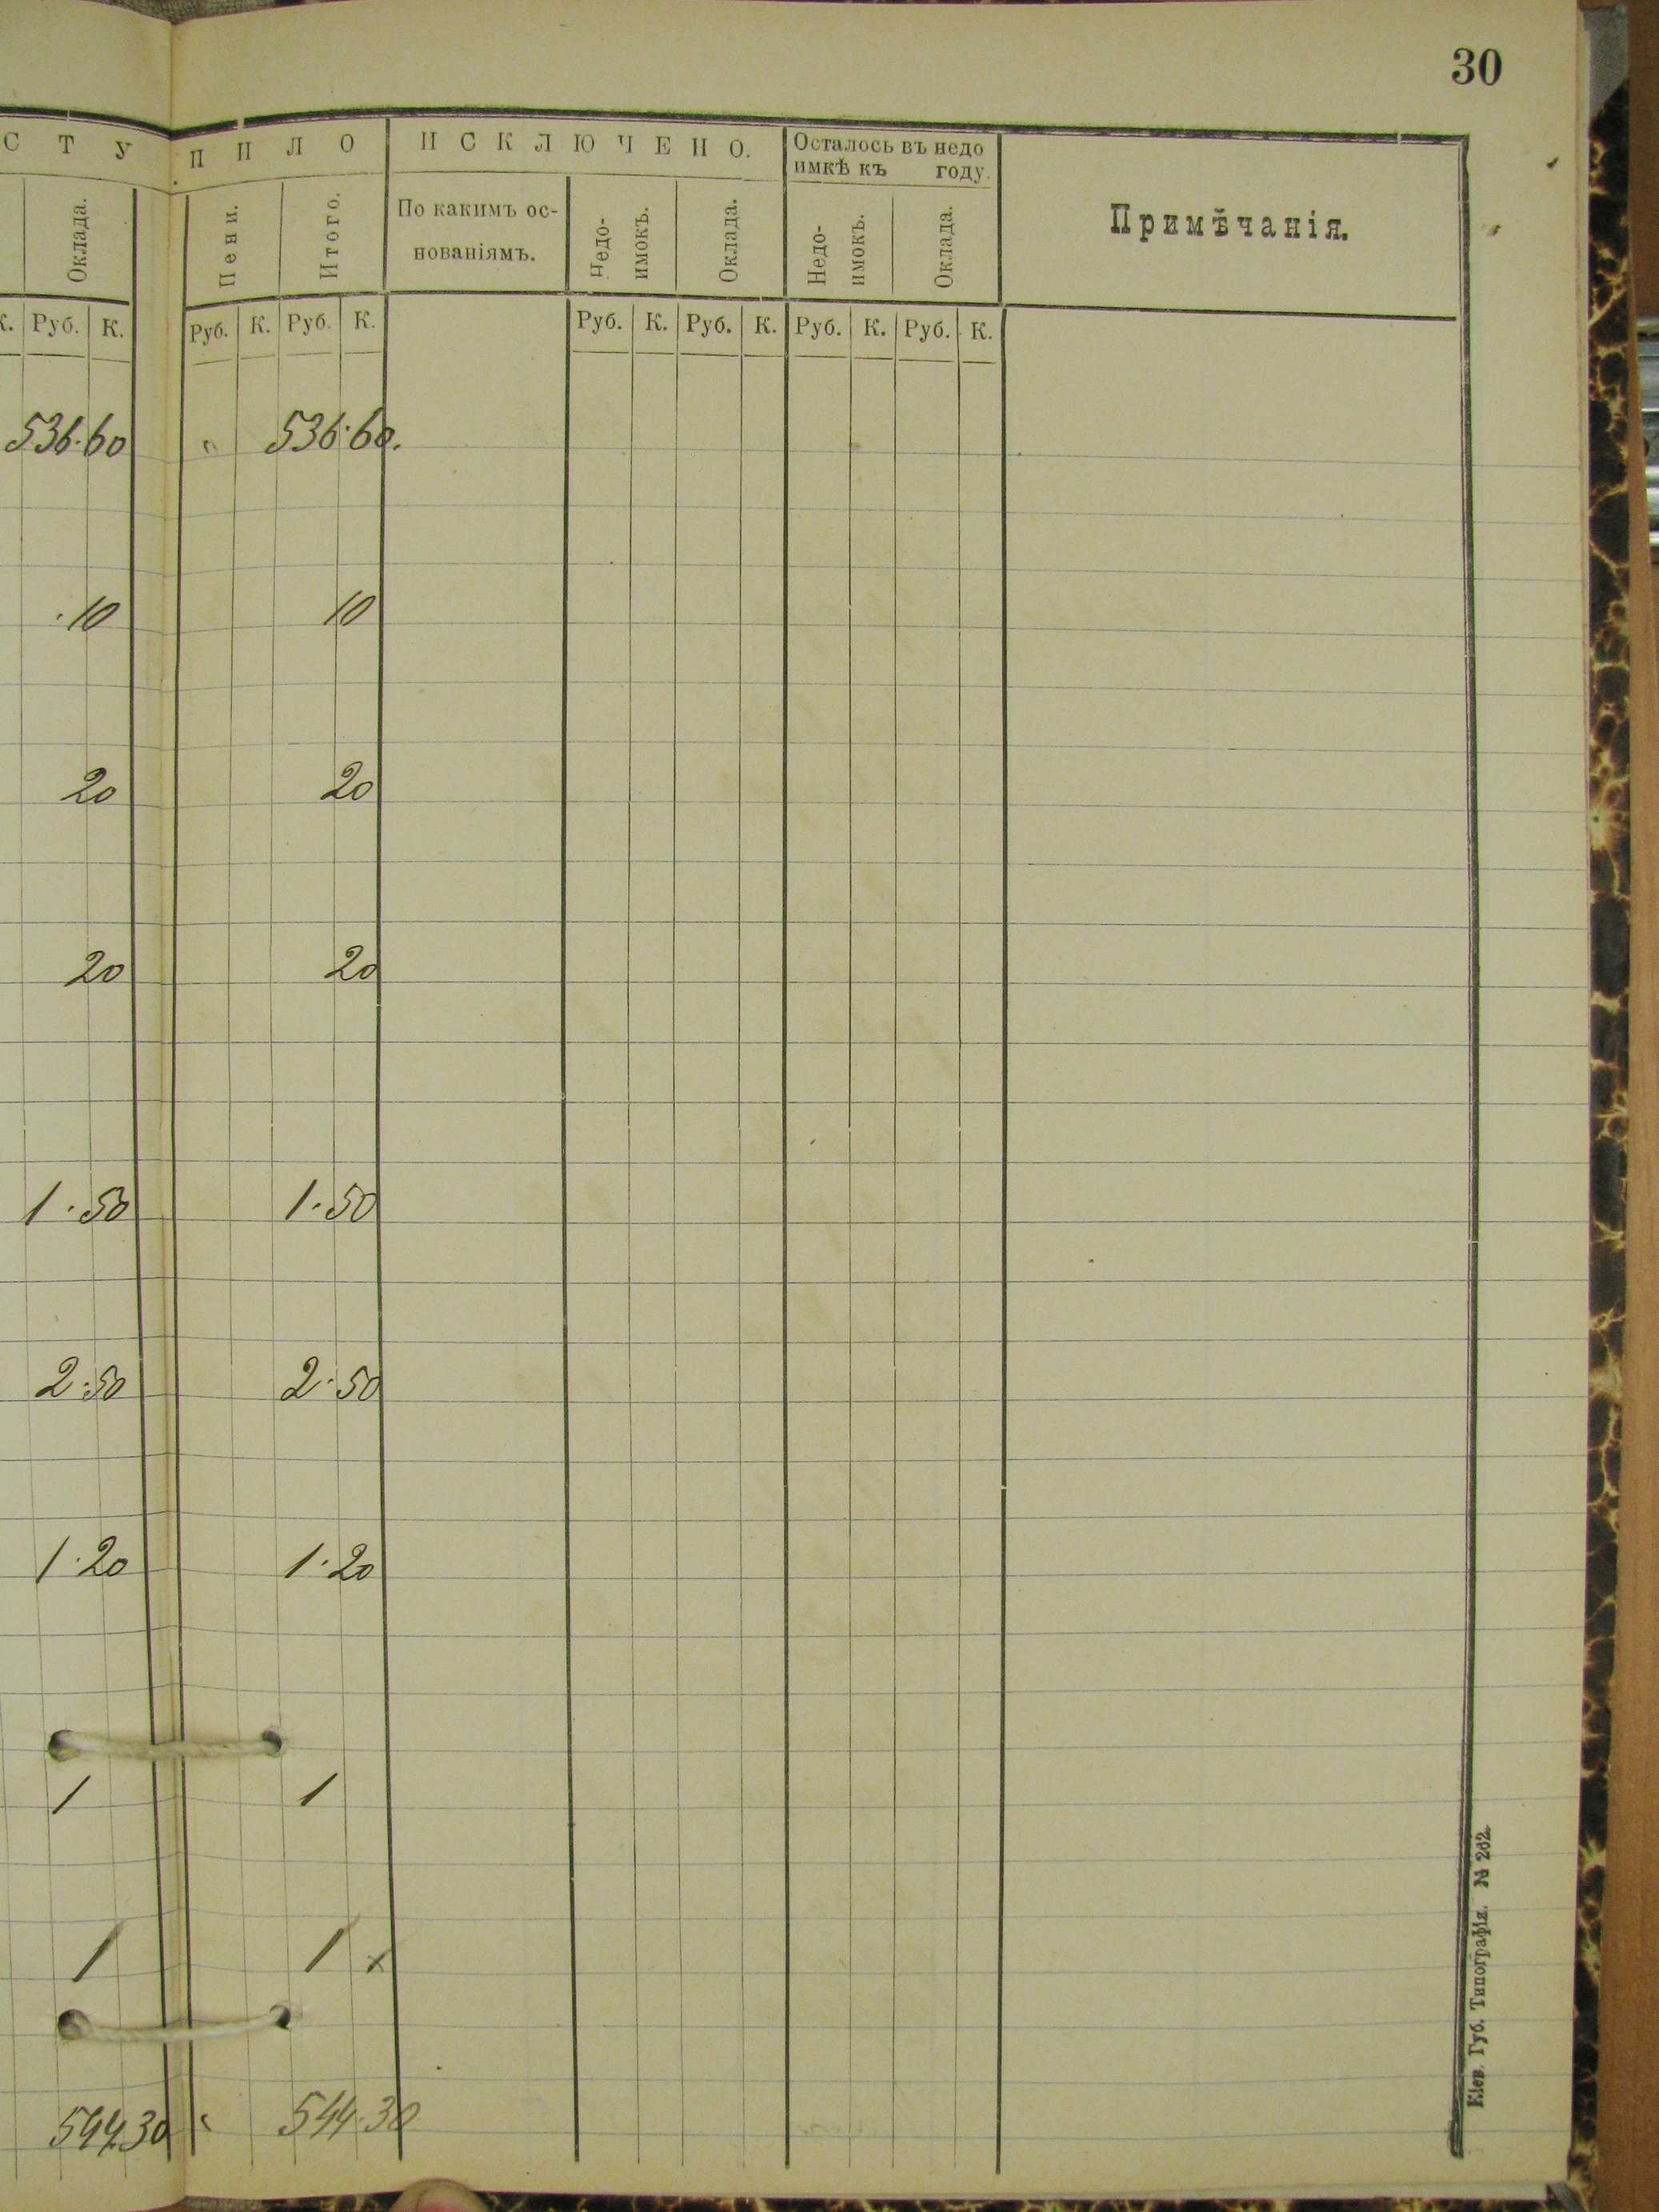 30
СТУПИЛО
ИСКЛЮЧЕНО.
Осталось въ недо
имкѣ къ году.
Примѣчанія.
Оклада.
Пени.
Итого.
По какимъ ос-
нованіямъ.
Недо-
имокъ.
Оклада.
Недо-
имокъ.
Оклада.
К. Руб. К. Руб. К. Руб. К. Руб. К. Руб. К. Руб. К. Руб. К.
536·60 " 536·60.
·10 10
20 20
20 20
1·50 1·50
2·50 2·50
1·20 1·20
1 1
1 1 x
544.30 " 544·30
Кіев. Губ. Типографія. № 262.